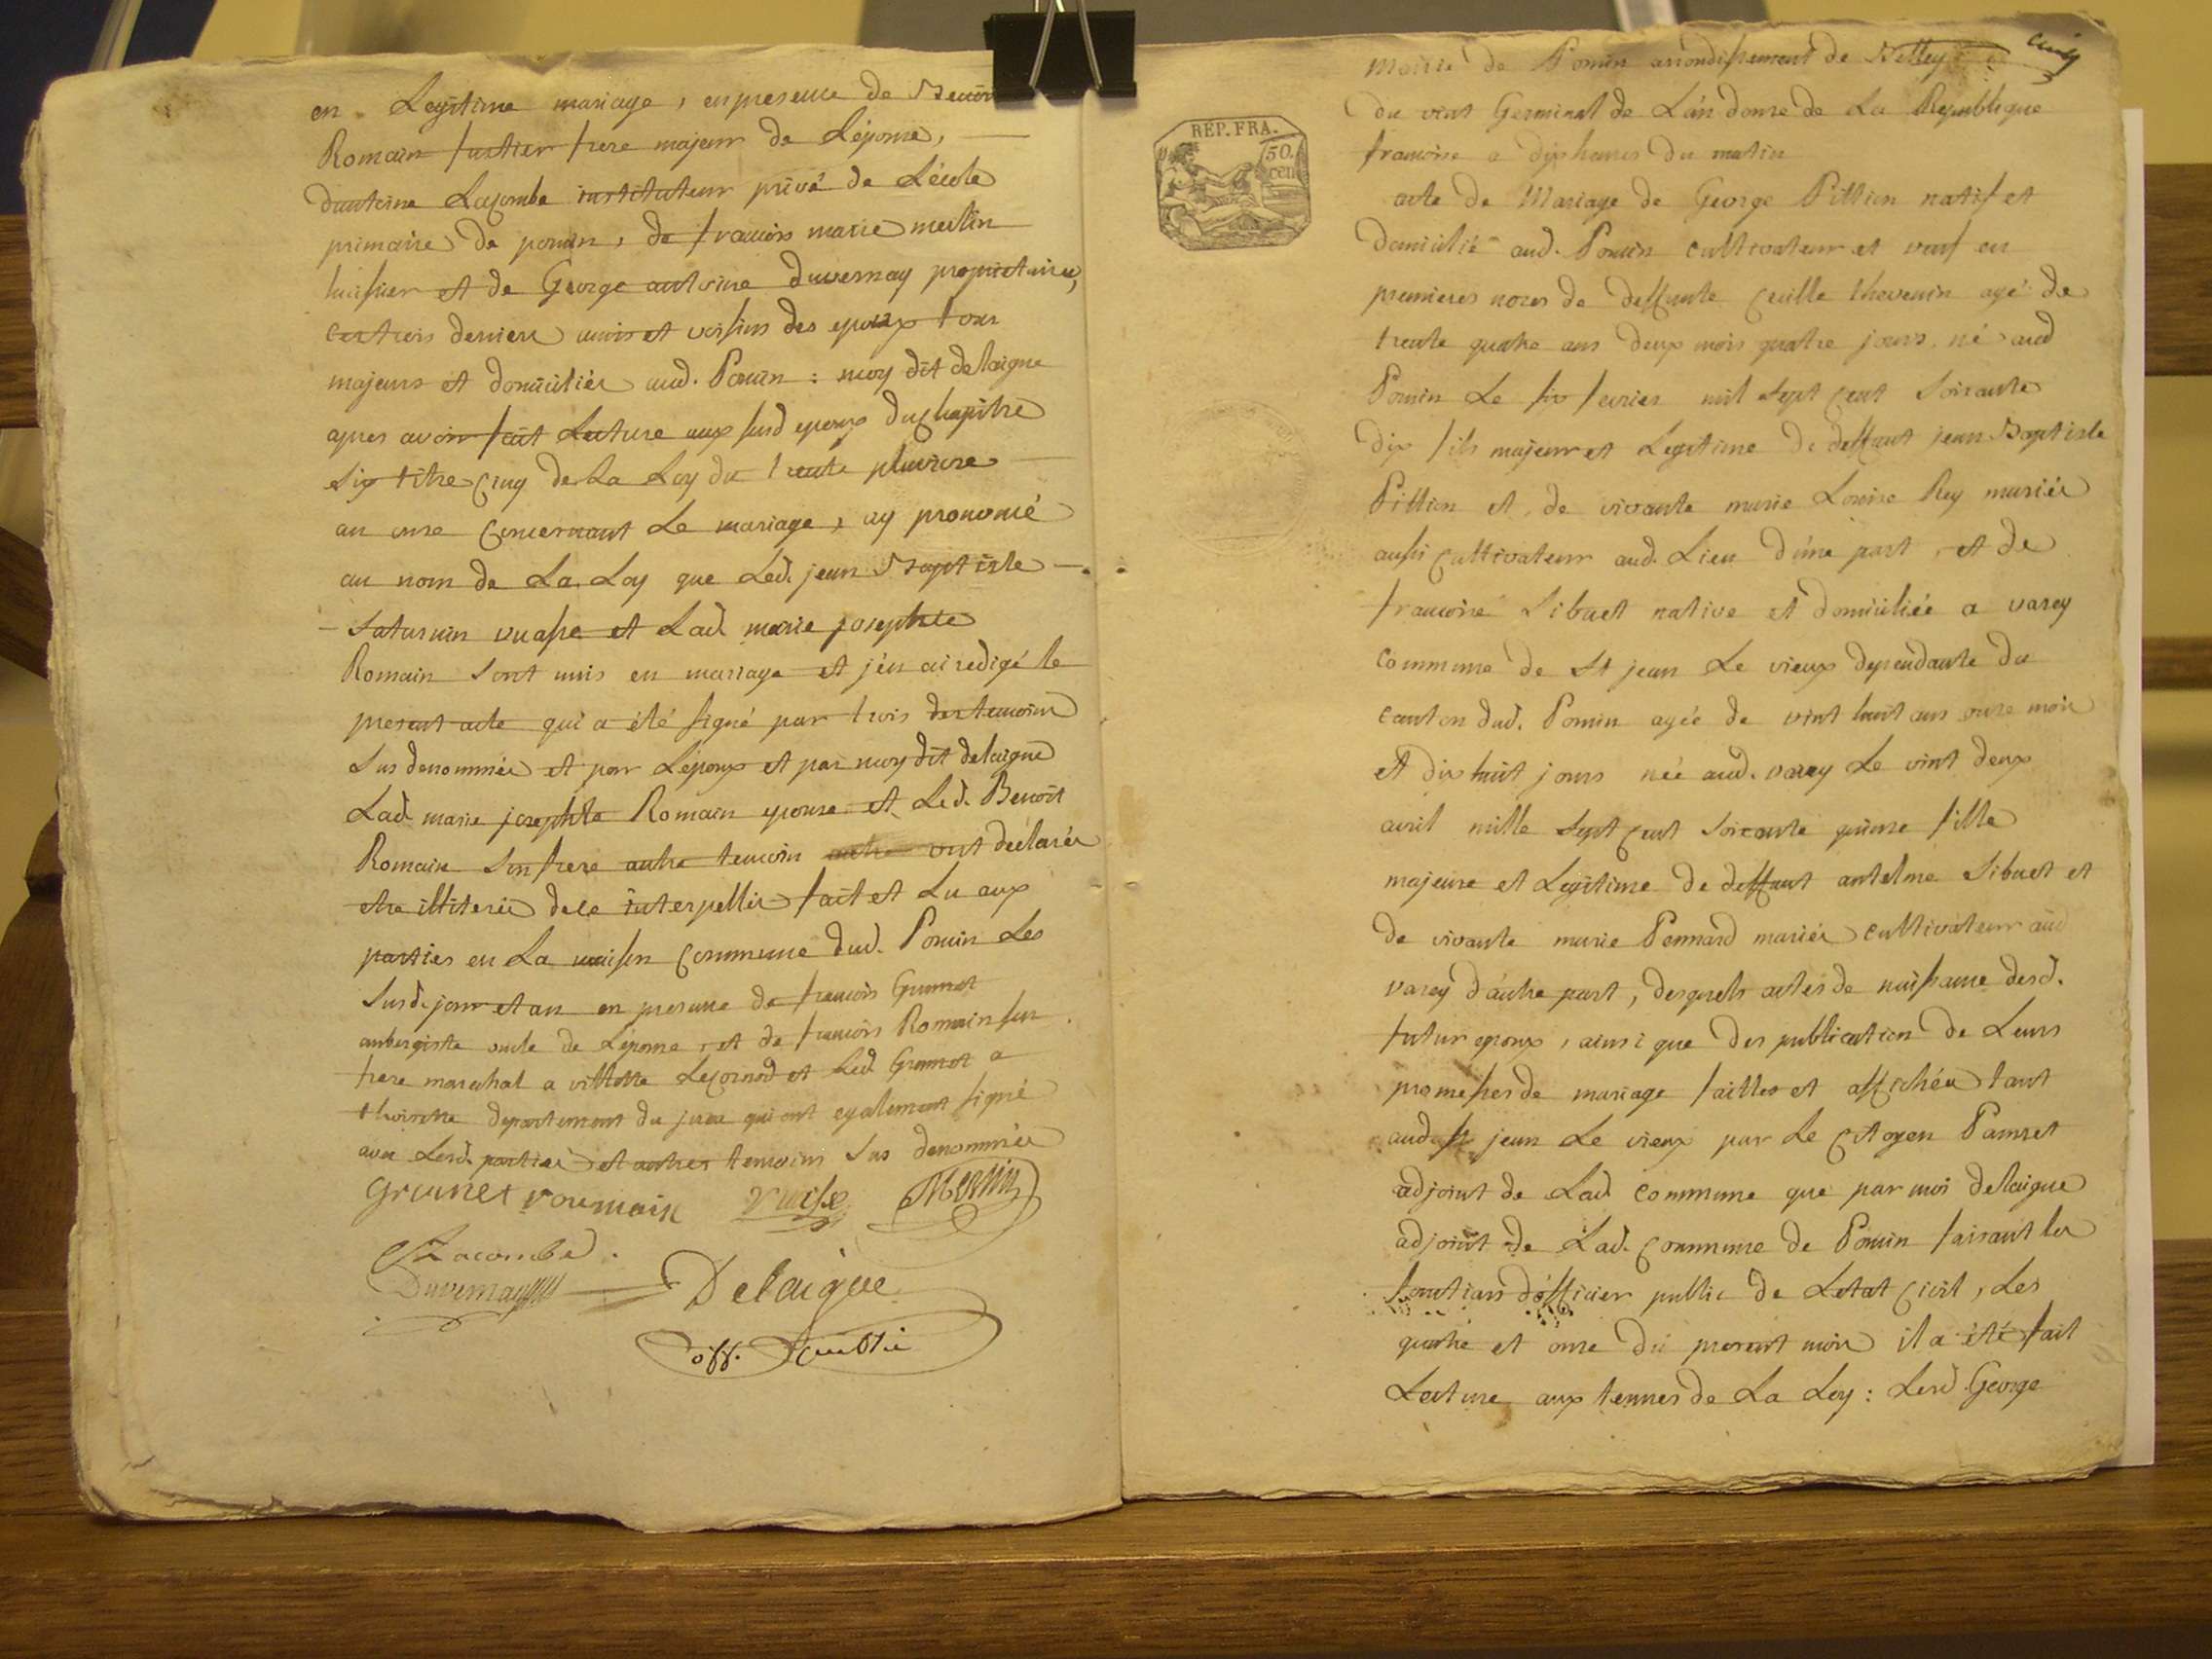 en Legitime mariage, en presence de Benoit
Romain frere majeur de L'épouse,
d'antoine Lacombe instituteur privé de L'école
primaire de poncin, de francois marie merlin
huissier et de George antoine duvernay proprietaire,
ces trois derniers amis et voisins des epoux tous
majeurs et domiciliés aud. Poncin : moy dit delaigue
apres avoir fait Lecture aux susd epoux du chapitre
six titre cinq de La Loy du trente pluviose
an onze concernant Le mariage, ay prononcé
au nom de La Loy que Led. jean Baptiste
Saturnin vuasse et Lad. marie josephte
Romain sont unis en mariage et j'en ai redigé le
present acte qui a été signé par trois des temoins
sus denommés et par L'epoux et par moy dit delaigue
Lad marie josephte Romain epouse et Led. Benoit
Romain son frere autre temoin ont declarés
etre illiterés de ce interpellés fait et Lu aux
parties en La maison commune dud. Poncin Les
susd. jour et an en presence de francois Grumet
aubergiste oncle de L'epouse, et de francois Romain son
frere marechal a villette et Led Grumet a
thoirette departement du jura qui ont egalement signé
avec Lesd. parties et autres temoins sus denommés
Grunet roumain vuasse Merlin
Lacombe
Duvernay Delaigue
off. Public
cinq
Mairie de Poncin arrondissement de Belley
REP. FRA.
50.
cen
du vint Germinal de L'an douze de La Republique
francoise a dix heures du matin
acte de Mariage de George Pittion natif et
domicilié aud. Poncin cultivateur et veuf en
premieres noces de deffunte Cecille thevenin agé de
trente quatre ans deux mois quatre jours né aud
Poncin Le six fevrier mil sept cent soixante
dix fils majeur et Legitime de deffunt jean Baptiste
Pittion et de vivante marie Louise Rey mariés
aussi cultivateur aud. Lieu d'une part, et de
francoise Sibuet native et domiciliée a varey
commune de St jean Le vieux dependante du
canton dud. Poncin agée de vint huit ans onze mois
et dix huit jours née aud. varey Le vint deux
avril mille sept cent soixante quinze fille
majeure et Legitime de deffunt antelme Sibuet et
de vivante marie Pennard mariés cultivateur aud
varey d'autre part, desquels actes de naissance desd.
futur epoux, ainsi que des publication de Leurs
promesses de mariage faittes et affichées tant
aud St jean Le vieux par Le citoyen
adjoint de Lad commune que par moi delaigue
adjoint de Lad. commune de Poncin faisant les
fonctions d'officier public de L'etat civil, Les
quatre et onze du present mois il a été fait
Lecture aux termes de La Loy : Lesd. George